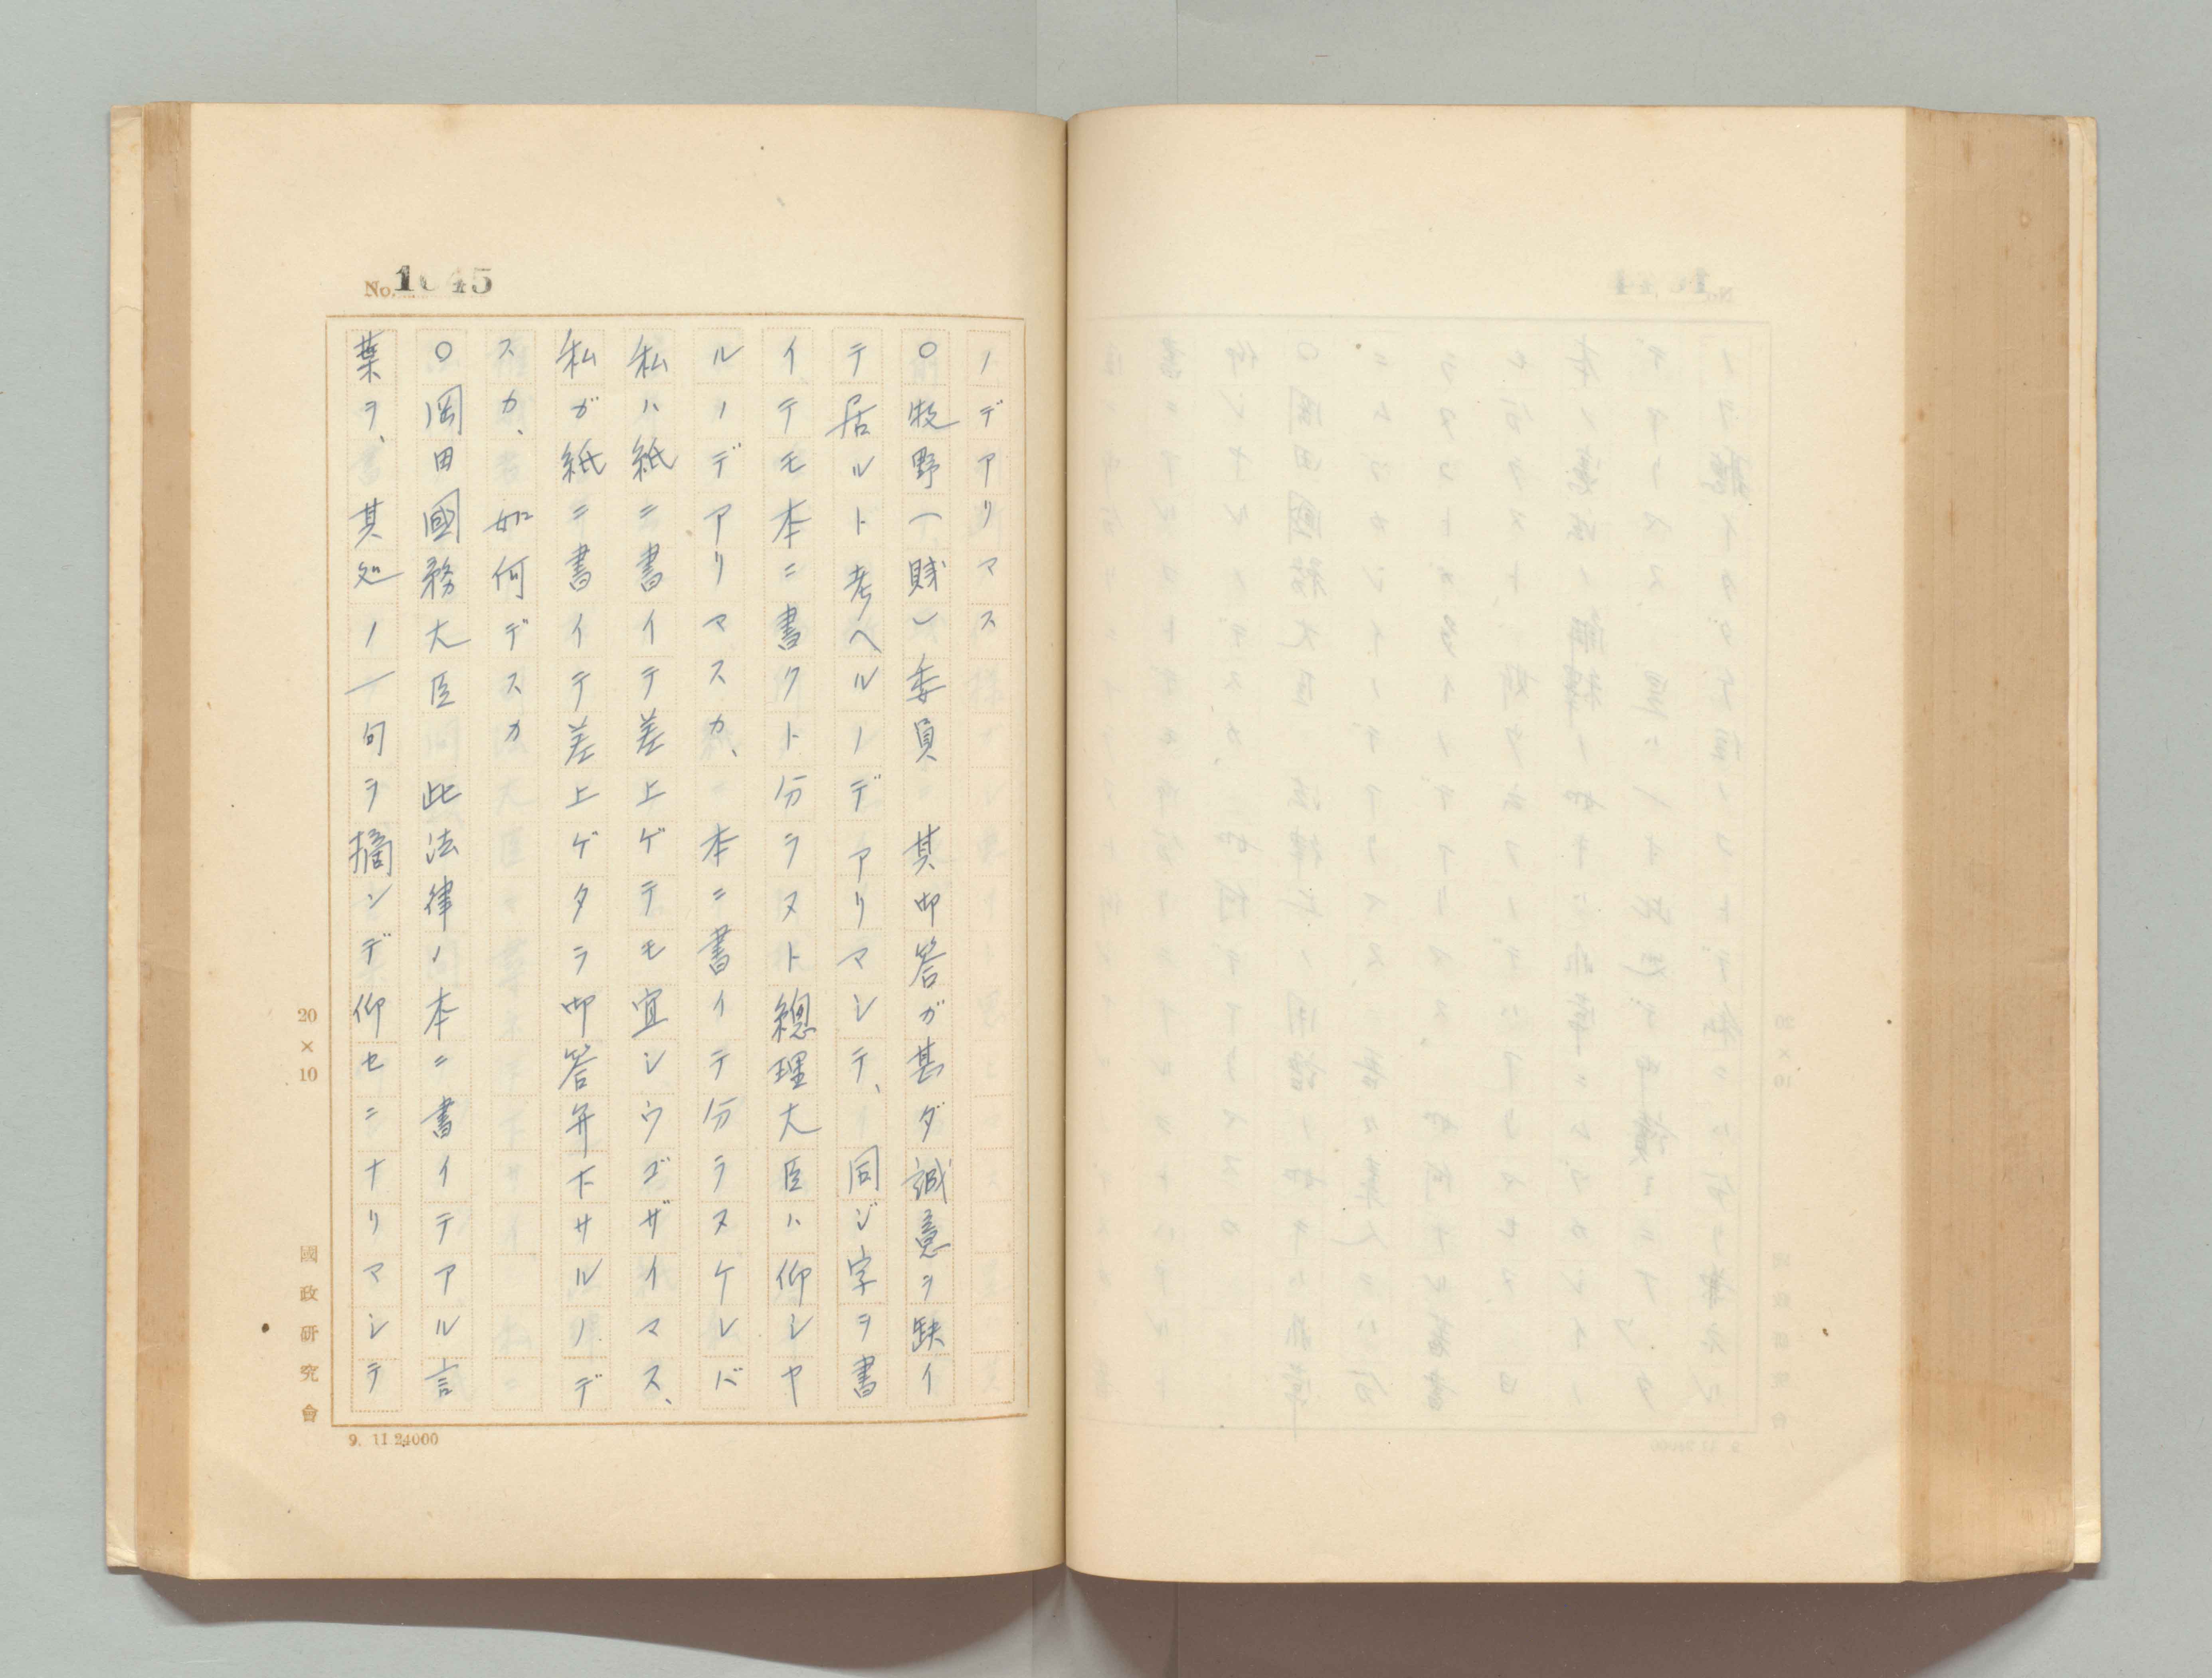 No. 1045
ノデアリマス
○牧野(賤)委員　其御答ガ甚ダ誠意ヲ缺イ
テ居ルト考ヘルノデアリマシテ、同ジ字ヲ書
イテモ本ニ書クト分ラヌト總理大臣ハ仰シヤ
ルノデアリマスカ、本ニ書イテ分ラヌケレバ
私ハ紙ニ書イテ差上ゲテモ宜シウゴザイマス、
私ガ紙ニ書イテ差上ゲタラ御答弁下サルノデ
スカ、如何デスカ
○岡田國務大臣　此法律ノ本ニ書イテアル言
葉ヲ、其処ノ一句ヲ摘ンデ仰セニナリマシテ
20×10
國政研究會
9. 11.24000